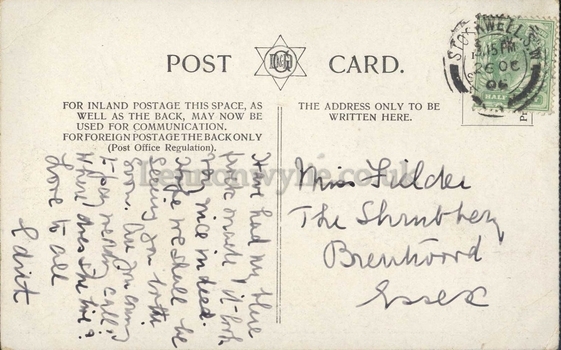 POST CARD.
FOR INLAND POSTAGE THIS SPACE, AS
WELL AS THE BACK, MAY NOW BE
USED FOR COMMUNICATION.
FOR FOREIGN POSTAGE THE BACK ONLY
(Post Office Regulation).
THE ADDRESS ONLY TO BE
WRITTEN HERE.
STOCKWELL S.W
.15 PM
26 OC
06
HALF
Have had my blue
frock it look
very nice indeed.
hope we shall be
seeing you both
soon. Are you coming
to pay me my call?
where does she live?
Love to all
Miss Fielder
The Shrubbery
Brentwood
Essex